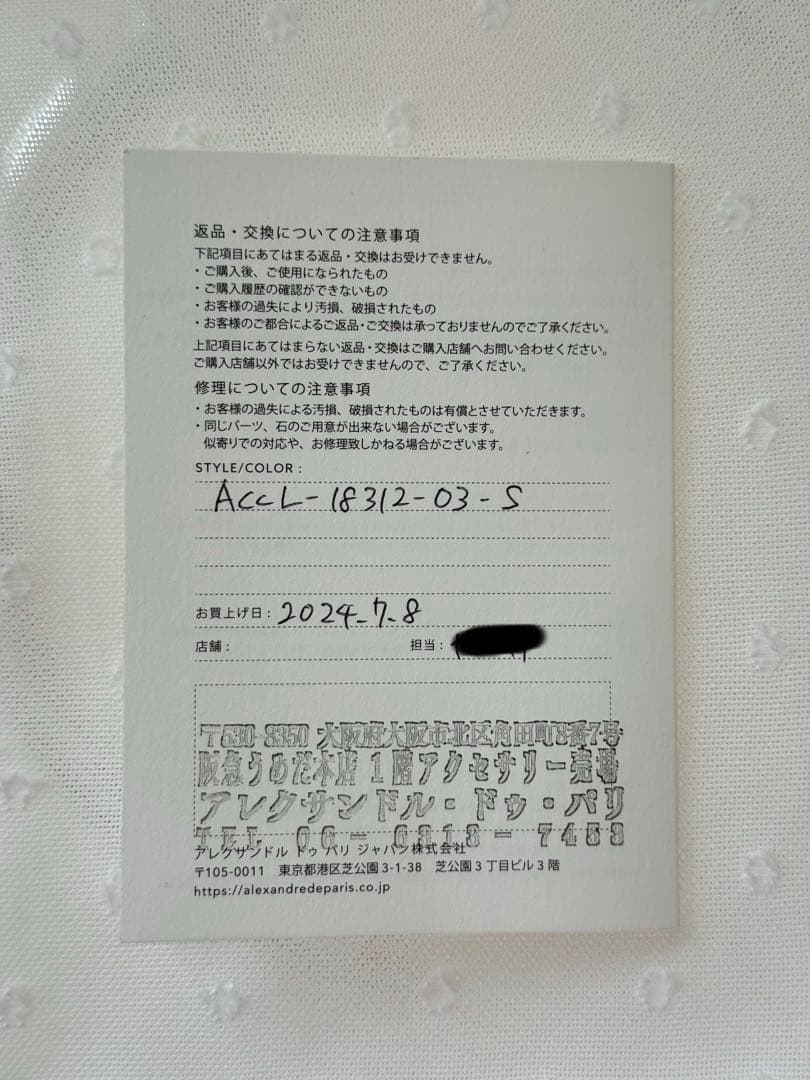 返品・交換についての注意事項
下記項目にあてはまる返品・交換はお受けできません。
・ご購入後、ご使用になられたもの
・ご購入履歴の確認ができないもの
・お客様の過失により汚損、破損されたもの
・お客様のご都合によるご返品・ご交換は承っておりませんのでご了承ください。
上記項目にあてはまらない返品・交換はご購入店舗へお問い合わせください。
ご購入店舗以外ではお受けできませんので、ご了承ください。
修理についての注意事項
・お客様の過失による汚損、破損されたものは有償とさせていただきます。
・同じパーツ、石のご用意が出来ない場合がございます。
似寄りでの対応や、お修理致しかねる場合がございます。
STYLE/COLOR :
ACCL-18312-03-S
お買上げ日: 2024.7.8
店舗: 担当:
〒530-8350 大阪府大阪市北区角田町8番7号
阪急うめだ本店 1階アクセサリー売場
アレクサンドル・ドゥ・パリ
TEL 06-6313-7453
アレクサンドル ドゥ パリ ジャパン株式会社
〒105-0011 東京都港区芝公園3-1-38 芝公園3丁目ビル3階
https://alexandredeparis.co.jp